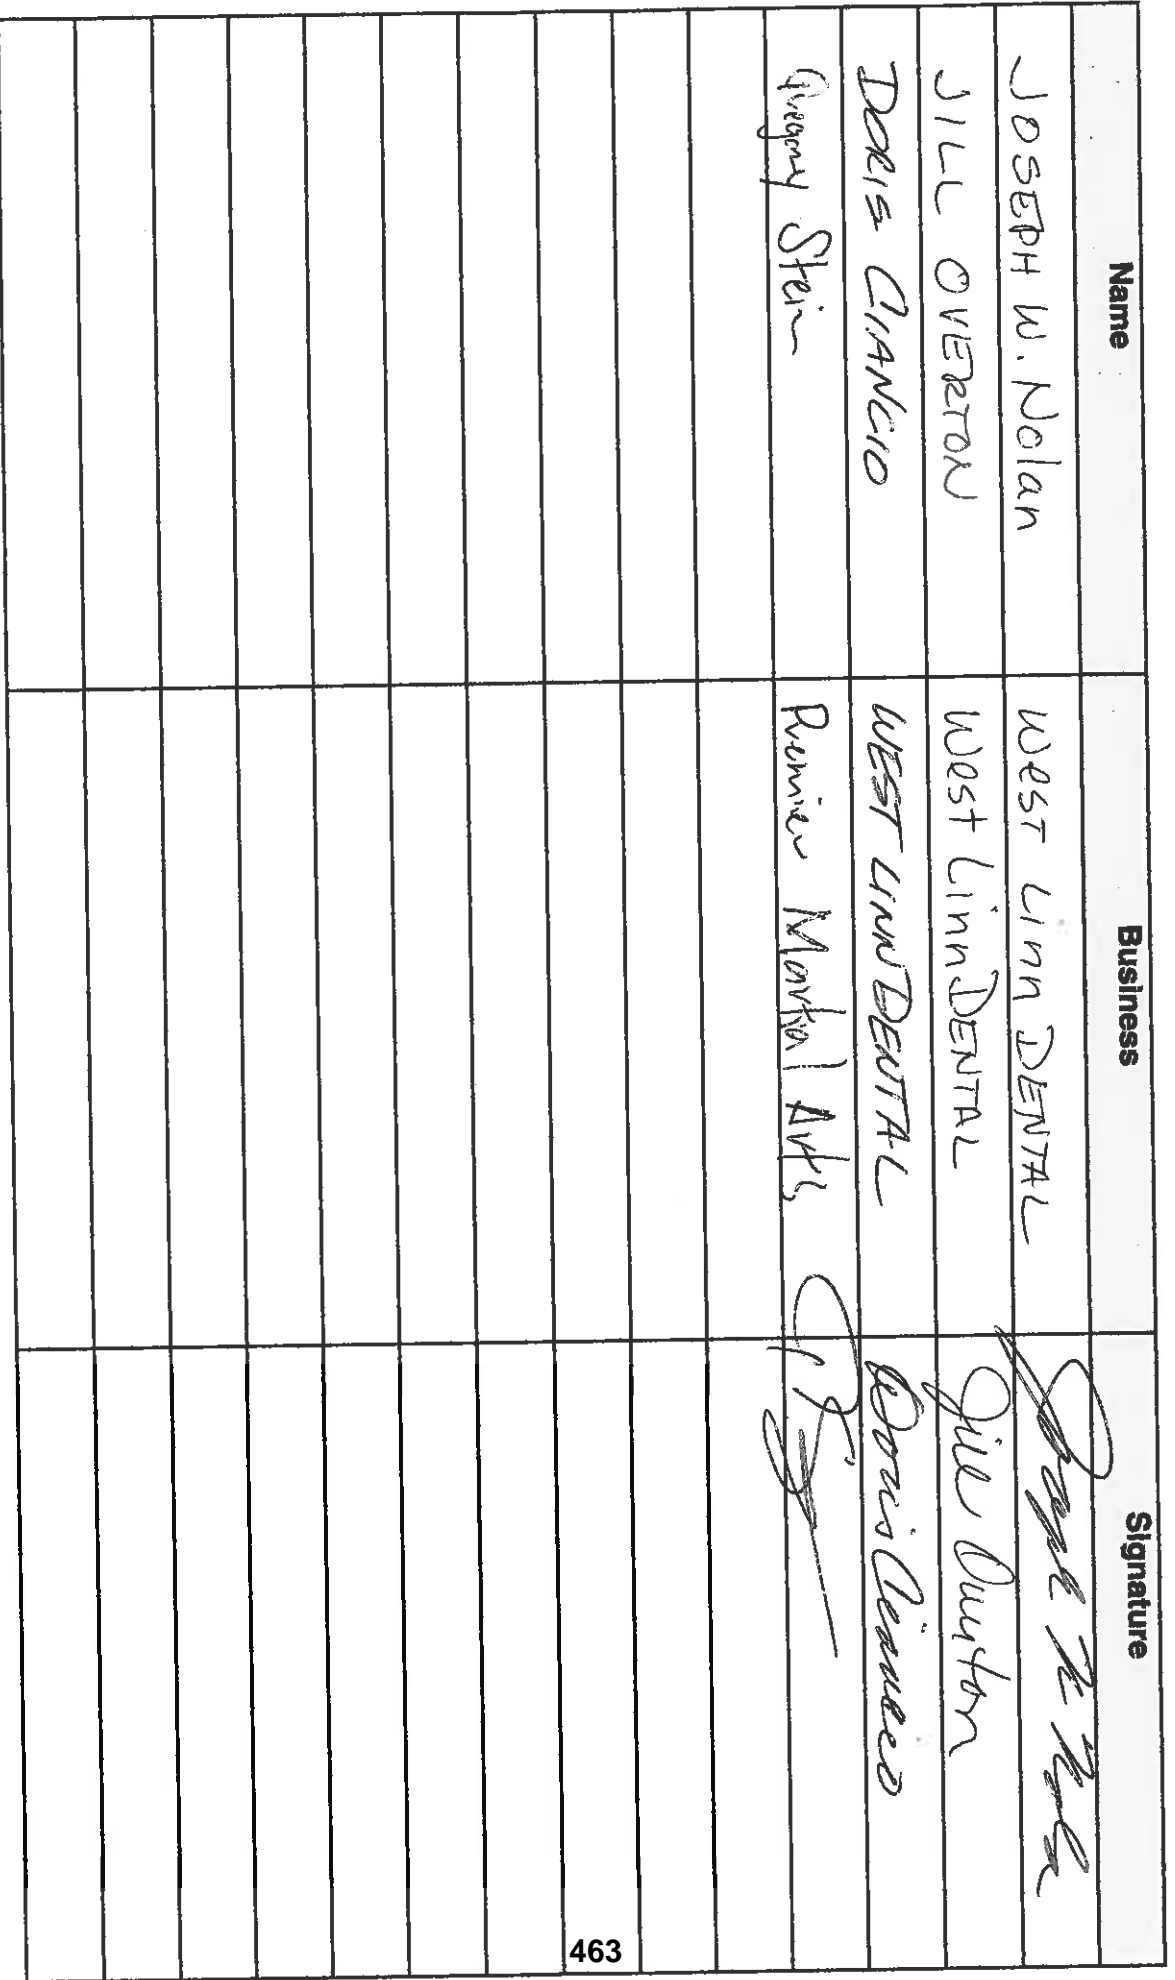 Name Business Signature
JOSEPH W. Nolan West Linn DENTAL
JILL OVERTON West Linn DENTAL Jill Overton
DORIS CIANCIO WEST LINN DENTAL Doris Ciancio
Gregory Stein Premier Martial Arts
463